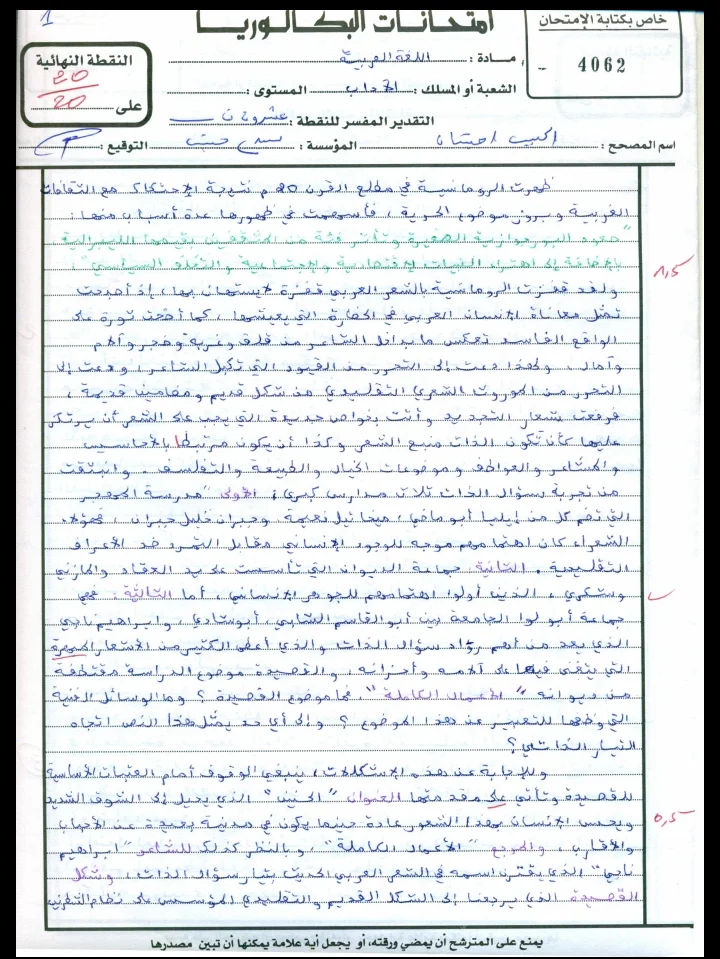 1
امتحانات البكالوريا
خاص بكتابة الإمتحان
4062
النقطة النهائية
20
20
على
مادة : اللغة العربية
الشعبة أو المسلك : الآداب المستوى :
التقدير المفسر للنقطة : عشرون
اسم المصحح : المؤسسة : التوقيع :
ظهرت الرومانسية في مطلع القرن 20م نتيجة الإحتكاك مع الثقافات
الغربية وبروز موضوع الحرية ، فأسهمت في ظهورها عدة أسباب منها :
"صعود البورجوازية الصغيرة وتأثر فئة من المثقفين بقيمها الليبرالية
بالإضافة إلى اهتزاز البنيات الاقتصادية والاجتماعية والتخلف السياسي".
1,5
ولقد قفزت الرومانسية بالشعر العربي قفزة لا يستهان بها ، إذ أصبحت
تمثل معاناة الإنسان العربي في الحضارة التي يعيشها ، كما أضحت ثورة على
الواقع الفاسد تعكس ما بداخل الشاعر من قلق وغربة وضجر وآلام
وآمال . ولهذا دعت إلى التحرر من القيود التي تكبل الشاعر ، ودعت إلى
التحرر من الموروث الشعري التقليدي من شكل قديم ومضامين قديمة ،
فرفعت شعار التجديد وأتت بخواص جديدة التي يجب على الشعر أن يرتكز
عليها كأن تكون الذات منبع الشعر وكذا أن يكون مرتبطا بالأحاسيس
والمشاعر والعواطف وموضوعات الخيال والطبيعة والتفلسف . وانبثقت
من تجربة سؤال الذات ثلاث مدارس كبرى : الأولى "مدرسة المهجر
التي تضم كل من إيليا أبو ماضي ، ميخائيل نعيمة وجبران خليل جبران ، فهؤلاء
الشعراء كان اهتمامهم موجه للوجود الإنساني مقابل التمرد ضد الأعراف
التقليدية . الثانية جماعة الديوان التي تأسست على يد العقاد والمازني
وشكري ، الذين أولوا اهتمامهم للجوهر الإنساني ، أما الثالثة : فهي
جماعة أبولو الجامعة بين أبو القاسم الشابي ، أبو شادي ، وابراهيم ناجي
الذي يعد من أهم رواد سؤال الذات والذي أعطى الكثير من الأشعار
التي يتغنى فيها على آلامه وأحزانه والقصيدة موضوع الدراسة مقتطفة
من ديوانه "الأعمال الكاملة" فما موضوع القصيدة ؟ وما الوسائل الفنية
التي وظفها للتعبير عن هذا الموضوع ؟ وإلى أي حد يمثل هذا النص اتجاه
التيار الذاتي ؟
وللإجابة عن هذه الإشكالات ، ينبغي الوقوف أمام العتبات الأساسية
للقصيدة وتأتي على مقدمتها العنوان "الحنين" الذي يحيل إلى الشوق الشديد
0,5
ويحس الإنسان بهذا الشعور عادة حينما يكون في مدينة بعيدة عن الأحباب
والأقارب ، والمرجع "الأعمال الكاملة" ، وبالنظر كذلك للشاعر "ابراهيم
ناجي" الذي يقترن اسمه في الشعر العربي الحديث بتيار سؤال الذات ، وشكل
القصيدة الذي يرجعنا إلى الشكل القديم والتقليدي المؤسس على نظام الشطرين
يمنع على المترشح أن يمضي ورقته، أو يجعل أية علامة يمكنها أن تبين مصدرها